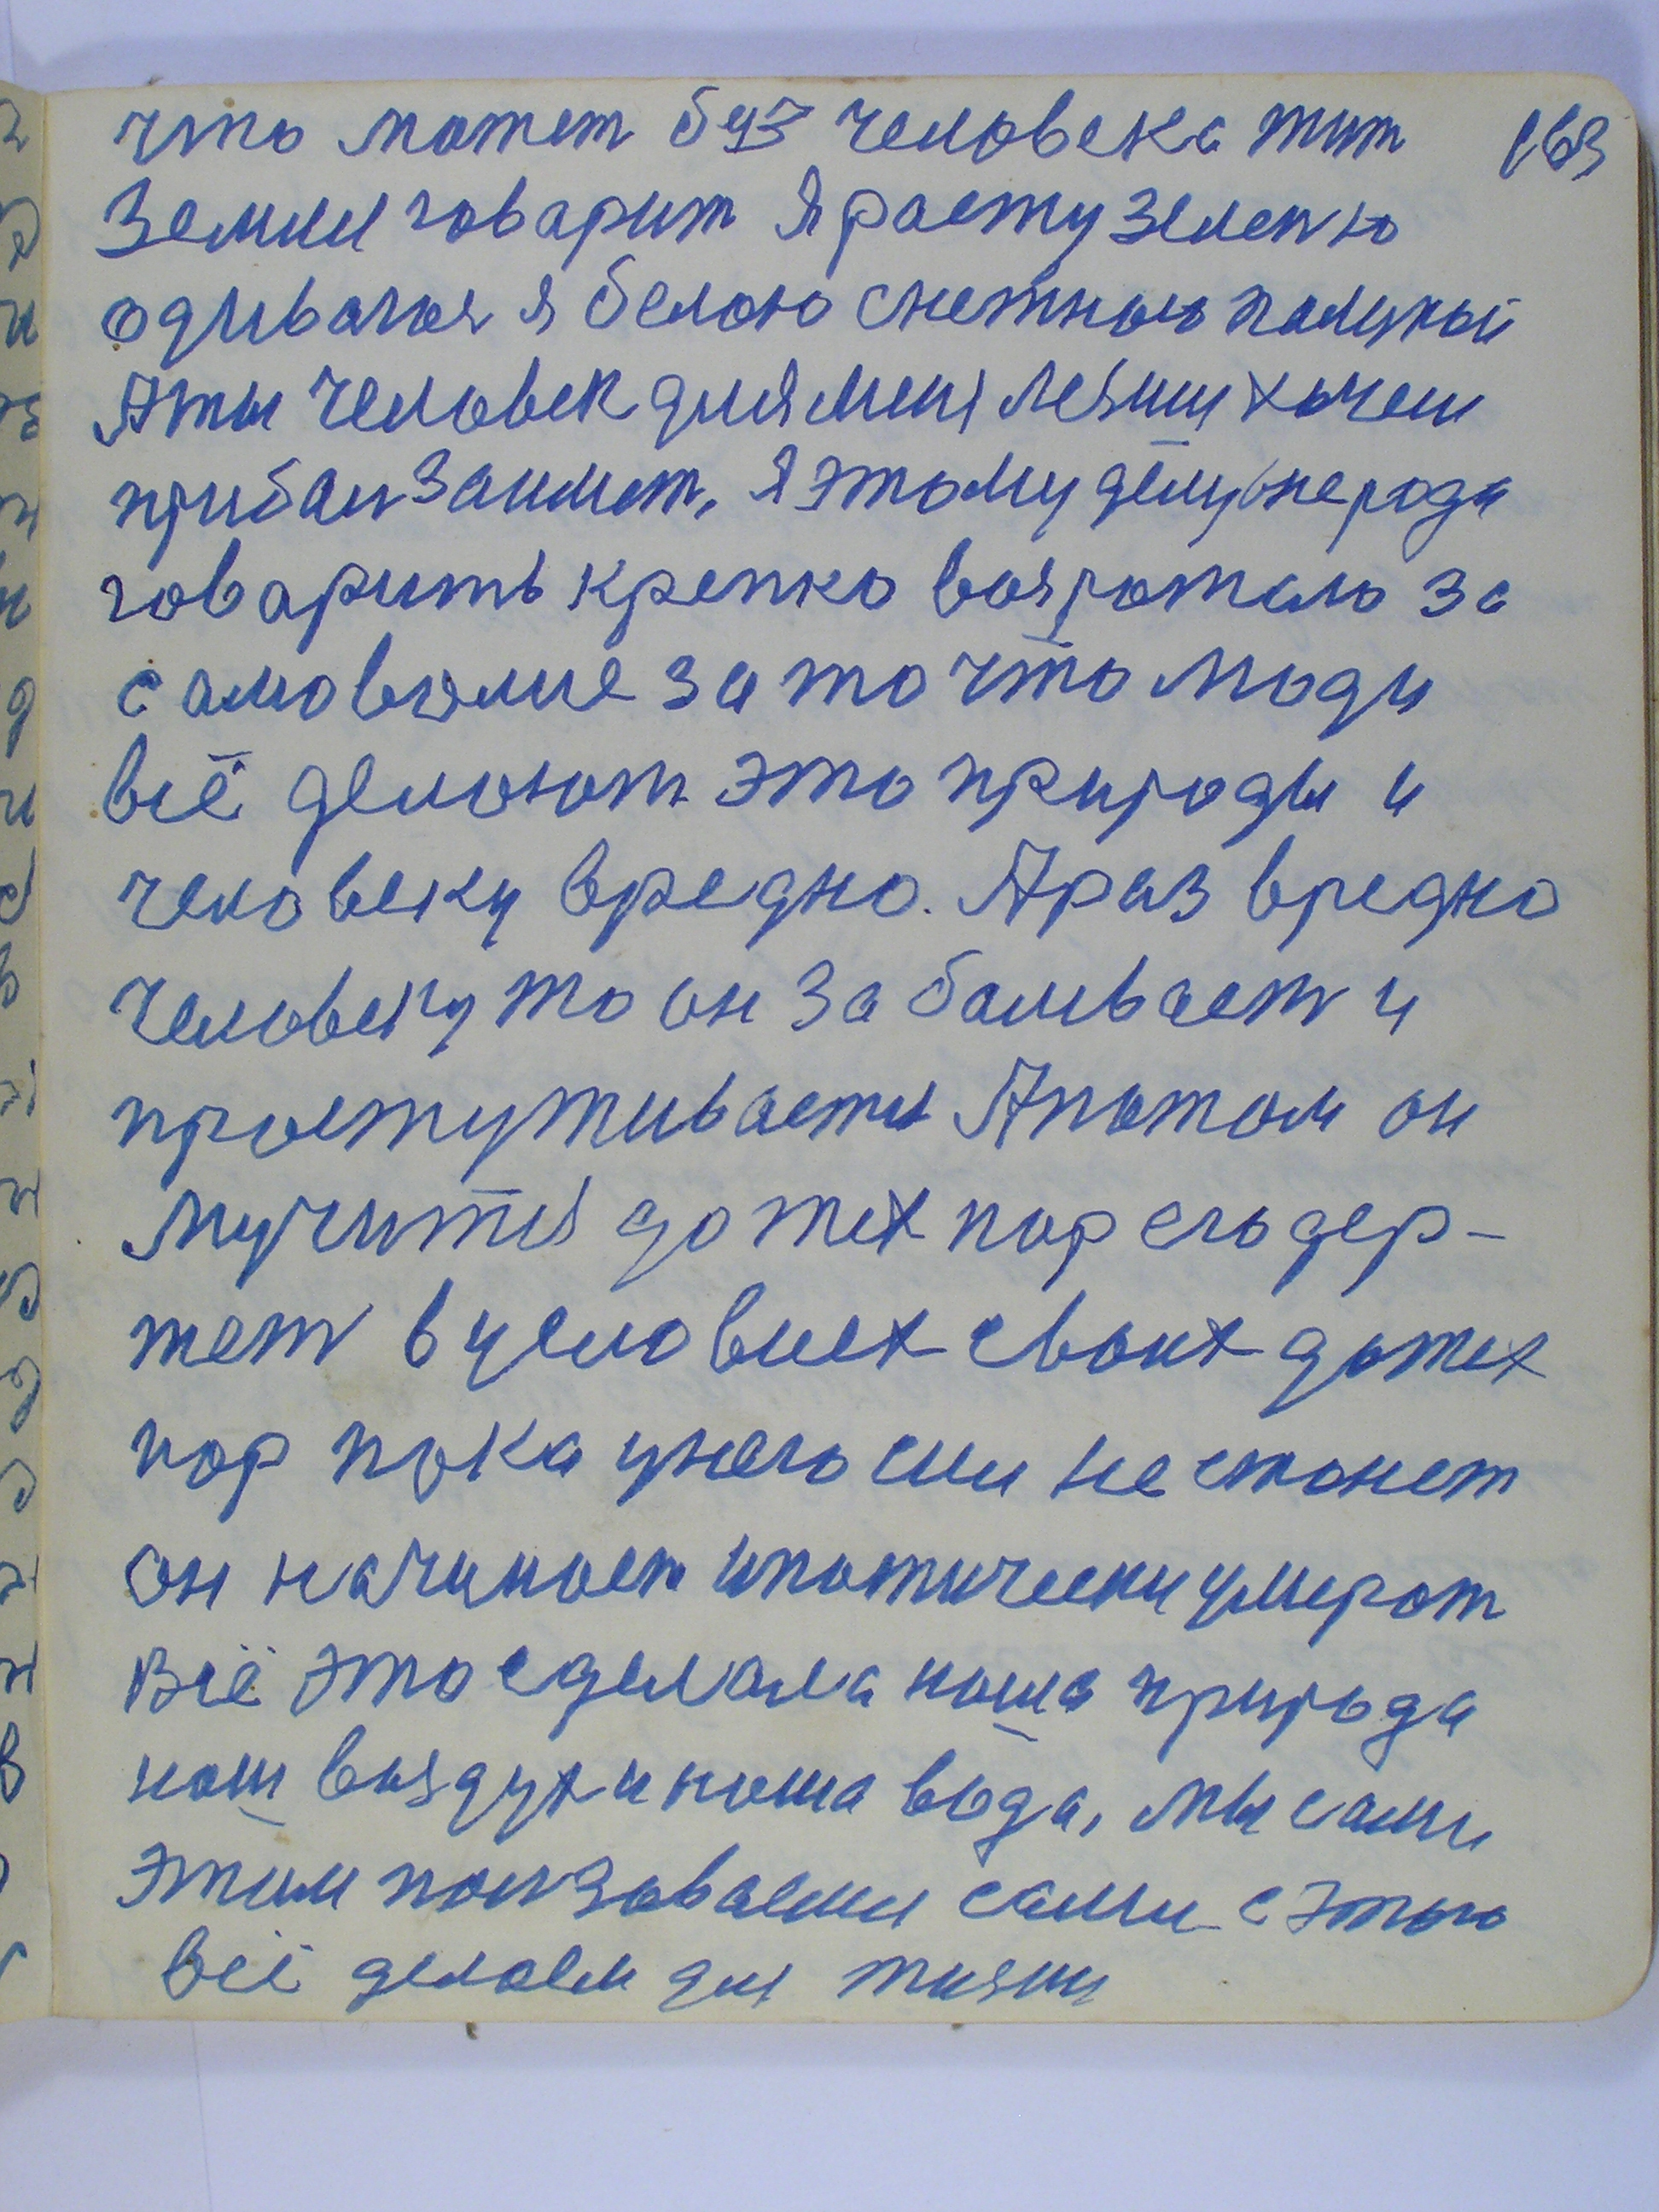 что может без человека жит 163
Земля говарит Я расту зеленю
одиваюся я белою снежною
А ты человек для меня хочеш
Я этому делу не рада
говарить крепко возрожаю за
самоволие за то что люди
всё делают это природы и
человеку вредно. А раз вредно
человеку то он заболивает и
простуживается А потом он
мучится до тех пор его дер-
жет в условиех своих до тех
пор пока у него сил не станет
он начинает ипотически умерат
Всё это сделала наша природа
наш воздух и наша вода, мы сами
этим ползоваемся сами с этого
всё делаем для жизни